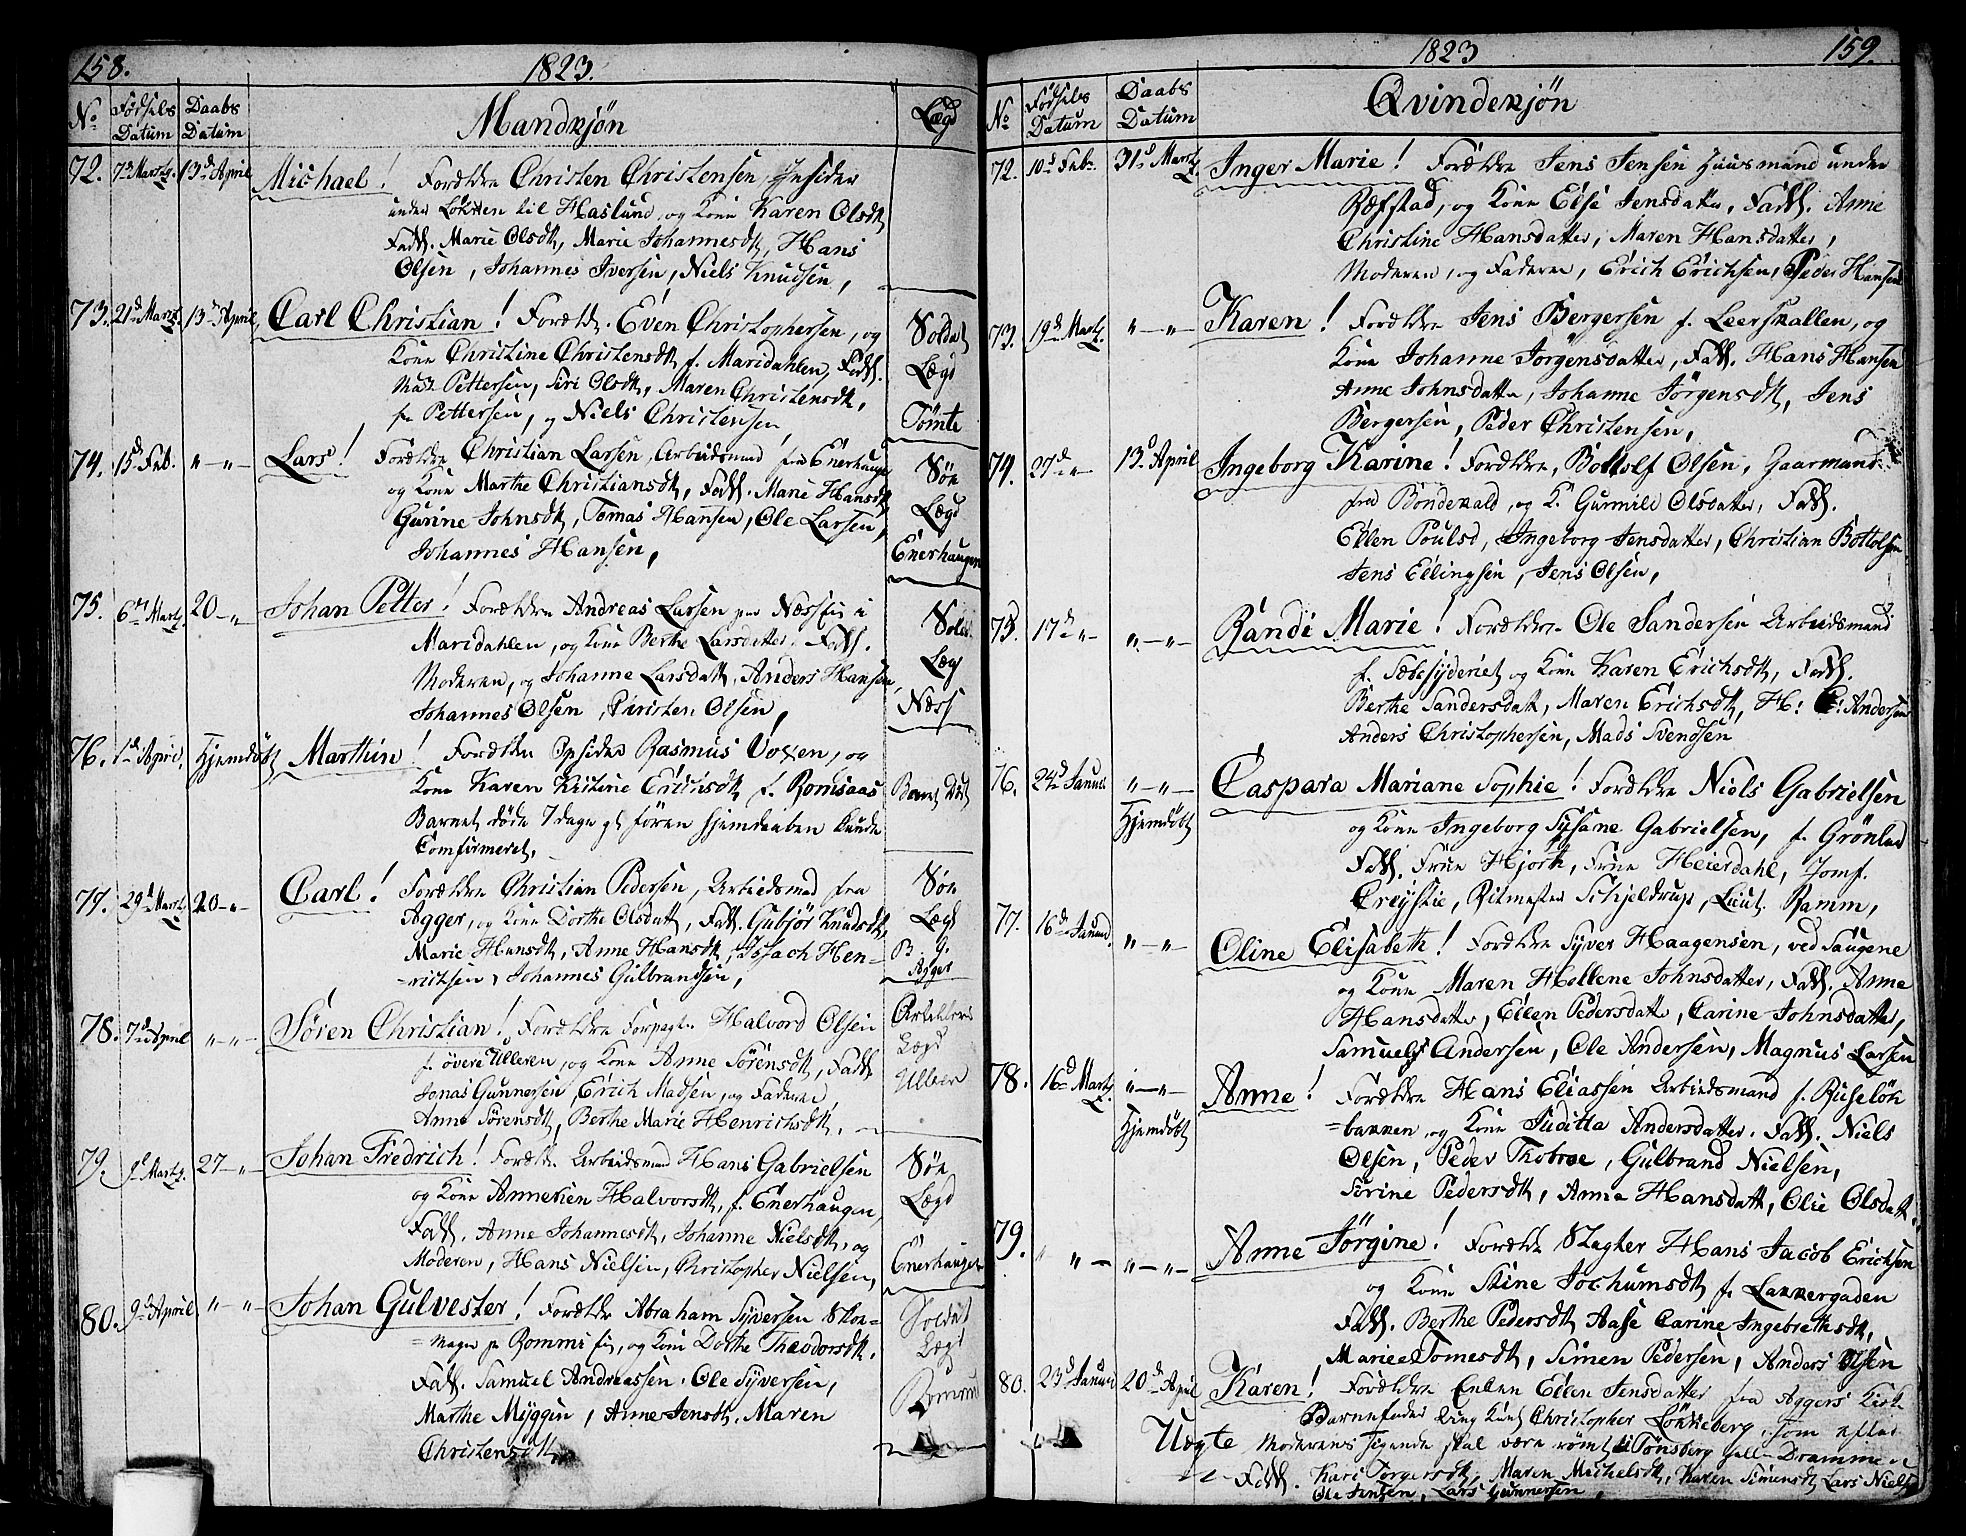 158. 1823.
No Fødsels Datum Daabs Datum Mandkjön Lægd
72. 7d Martz. 13d April Michael! Forældre Christen Christensen, Insider
under Løkken til Haslund, og Kone Karen Olsdt
Fadd. Marie Olsdt, Marie Johannesdt, Hans
Olsen, Johannes Iversen, Niels Knudsen,
73. 21d Martz. 13d April, Carl Christian! Foræld. Even Christophersen, og
Kone Christine Christensdt f. Maridahlen, Fadd.
Pettersen, Siri Olsdt, Maren Christensdt,
Pettersen, og Niels Christensen
Soldat
Lægd
Tömte
74. 15d Feb. "—"— Lars! Forældre Christian Larsen, Arbeidsmand fra Enerhaugen
og Kone Marthe Christiansdt, Fadd. Marie Hansdt
Gurine Johnsdt, Tomas Hansen, Ole Larsen,
Johannes Hansen,
Søe
Lægd
Enerhaugen
75. 6te Martz. 20—"— Johan Petter! Forældre Andreas Larsen paa Næss i
Maridahlen, og Kone Berthe Larsdatter. Fadd.
Moderen, og Johanne Larsdatt. Anders Hansen
Johannes Olsen, Christen Olsen,
Sold.
Lægd
Næss
76. 1d April, Hjemdøbt Marthin! Forældre Opsider Rasmus, og
Kone Karen Kristine f. Romsaas
Barnet døde 7 dage gl. føren hjemdaaben kunde
Comfirmeret.
Barnet Død
77. 29d Martz 20—"— Carl! Forældre Christian Pedersen, Arbeidsmd fra
Agger, og Kone Dorthe Olsdatt, Fadd. Gubjør Knudsdt,
Marie Hansdt, Anne Hansdt, Issach Hen=
=richsen, Johannes Gulbrandsen,
Søe
Lægd
Agger
78. 7d April "—"— Sören Christian! Forældre Forpagt. Halvord Olsen
f. övere Ulleren, og Kone Anne Sörensdt, Fadd
Jonas Gunnersen, Erich Madsen, og Faderen
Anne Sörensdt, Berthe Marie Henrichsdt.
Artillerie
Lægd
Ulleren
79. Martz. 27—"— Johan Fredrich! Foræld. Arbeidsmd Hans Gabrielsen
og Kone Annekien Halvorsdt, f. Enerhaugen,
Fadd. Anne Johannesdt, Johanne Nielsdt, og
Moderen, Hans Nielsen, Christopher Nielsen,
Søe
Lægd
Enerhaugen
80. 9d April "—"— Johan Gulvester! Forældre Abraham Syversen Skoe=
=mager, og Kone Dorthe Theodorsdt.
Fadd. Samuel Andreassen. Ole Syversen,
Marthe Myggen, Anne Jensdt. Maren
Christensdt.
Soldat
Lægd
159. 1823
No Fødsels Datum Daabs Datum Qvindekjön
72. 10d Feb. 31d Martz Inger Marie! Forældre Jens Jensen Huusmand under
Ræfstad, og Kone Else Jensdatter, Fadd. Anne
Christine Hansdatter, Maren Hansdatter,
Moderen, og Faderen, Erich Erichsen, Peder Hansen
73. 19d Martz "—"— Karen! Forældre Jens Bergersen f. Leerskallen, og
Kone Johanne Jörgensdatter, Fadd. Hans Hansen
Anne Johnsdatter, Johanne Jörgensdt, Jens
Bergersen, Peder Christensen,
74. 27d "— 13d April Ingeborg Karine! Forældre, Bottolf Olsen, Gaarmand
fra Bondekald, og K. Gunnild Olsdatter, Fadd.
Ellen Poulsd, Ingeborg Jensdatter, Christian Bottolfsen
Jens Ellingsen, Jens Olsen,
75. 17d "— "—"— Randi Marie! Forældre Ole Sandersen Arbeidsmand
f. Sæbesyderiet og Kone Karen Erichsdt, Fadd.
Berthe Sandersdatt, Maren Erichsdt, H: Andersen
Anders Christophersen, Mads Svendsen
76. 24d Januar "—"— Hjemdöbt Caspara Mariane Sophie! Forældre Niels Gabrielsen
og Kone Ingeborg Susane Gabrielsen, f. Grönland
Fadd. Frue Hjorth, Frue Heierdahl, Jomf.
Creystie, Ritmester Schjeldrup, Lieut. Ramm,
77. 16d Januar. "—"— Oline Elisabeth! Forældre Syver Haagensen, ved Saugene
og Kone Maren Hellene Johnsdatter, Fadd. Anne
Hansdatter, Ellen Pedersdatter, Carine Johnsdatter,
Samuel Andersen, Ole Andersen, Magnus Larsen
78. 16d Martz. "—"— Hjemdöbt Anne! Forældre Hans Eliassen Arbeidsmand f. Ruselök
=bakken, og Kone Juditta Andersdatter. Fadd. Niels
Olsen, Peder Thoboe, Gulbrand Nielsen,
Sörine Pedersdt, Anna Hansdatt, Olie Olsdatt.
79. " "— "—"— Anne Jörgine! Forældre Slagter Hans Jacob Erichsen
og Kone Stine Jochumsdt f. Lakkergaden
Fadd. Berthe Pedersdt, Aase Carine Ingebrethsdt,
Marie Tomesdt, Simen Pedersen, Anders Olsen
80. 23d Januar 20d April Karen! Forældre Enken Ellen Jensdatter fra Aggers Kirk
Uægte Barnefader Ung Karl Christopher Løkkeberg, som efter
Moderens sigende skal være römt til Tönsberg heller Drammen
Fadd. Kari Torgersdt, Maren Michelsdt, Karen Simensdt, Lars Niels
Ole Jensen, Lars Gunnersen,